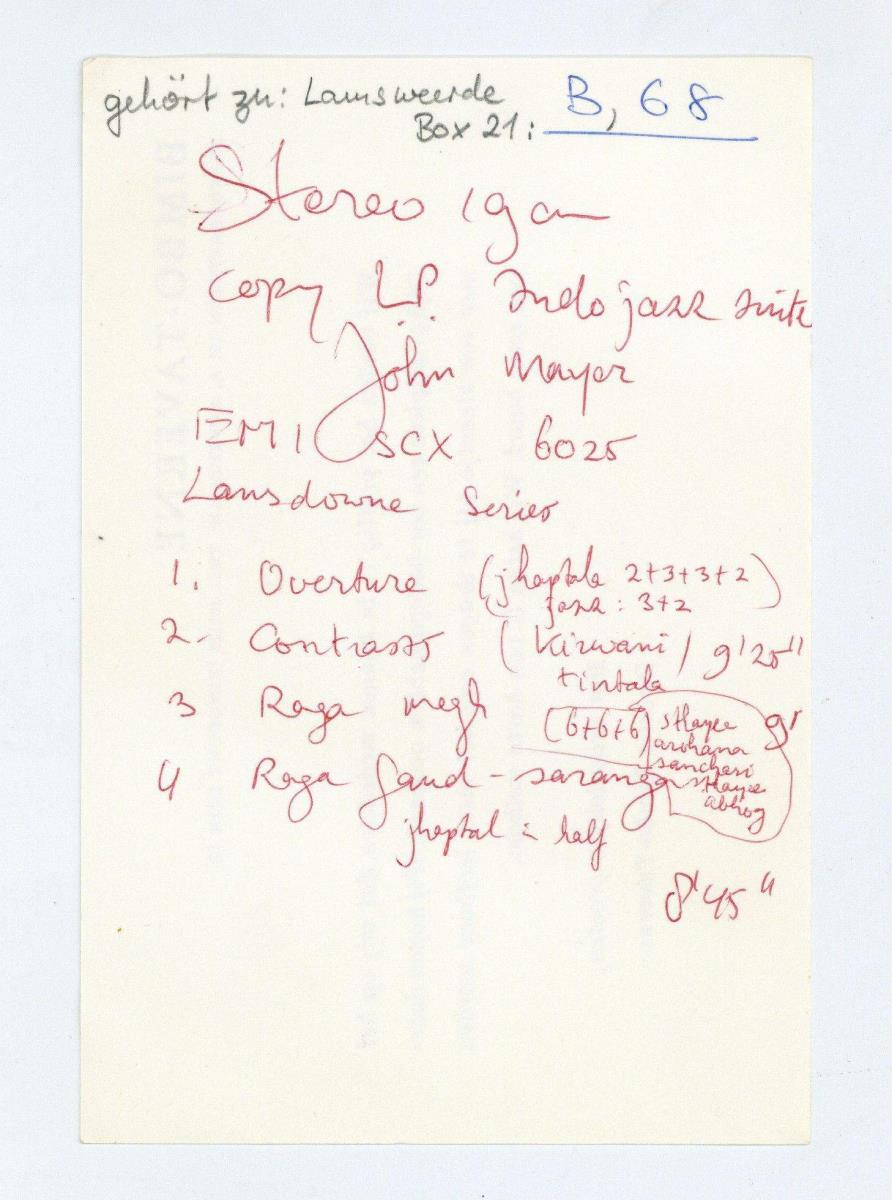 gehört zu: Lamsweerde
Box 21: B, 68
Stereo 19 cm
copy L.P. Indo jazz suite
John Mayer
EMI SCX 6025
Lansdowne Series
1. Overture (jhaptala 2+3+3+2)
jazz: 3+2
2. Contrasts (Kirwani / 9'25"
tintala
3 Raga megh (6+6+6) sthayee 9'
arohana
sanchari
sthayee
abhog
4 Raga Gaud-saranga
jhaptal = half
8'45"
BIMBO-TAVERNE